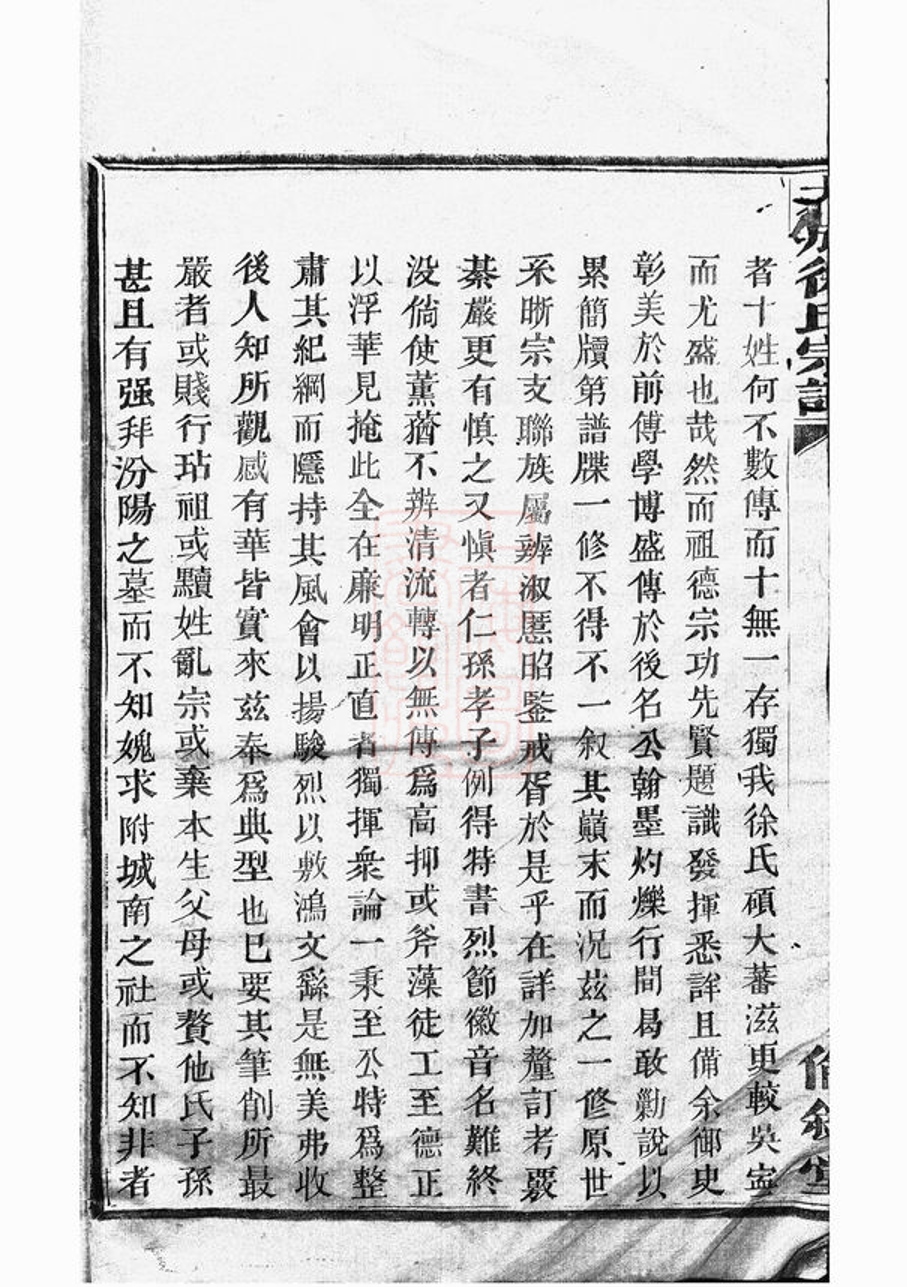 徐氏宗譜
者十姓何不數傳而十無一存獨我徐氏碩大蕃滋更較吳寧
而尤盛也哉然而祖德宗功先賢題識發揮悉詳且備余御史
彰美於前傅學博盛傳於後名公翰墨灼爍行間曷敢勦說以
累簡牘第譜牒一修不得不一叙其巔末而況茲之一修原世
系晰宗支聯族屬辨淑慝昭鑒戒胥於是乎在詳加釐訂考覈
綦嚴更有慎之又慎者仁孫孝子例得特書烈節徽音名難終
没倘使薰蕕不辨清流轉以無傳爲高抑或斧藻徒工至德正
以浮華見掩此全在廉明正直者獨揮衆論一秉至公特爲整
肅其紀綱而隱持其風會以揚駿烈以敷鴻文繇是無美弗收
後人知所觀感有華皆實來茲奉爲典型也已要其筆削所最
嚴者或賤行玷祖或黷姓亂宗或棄本生父母或贅他氏子孫
甚且有强拜汾陽之墓而不知媿求附城南之社而不知非者